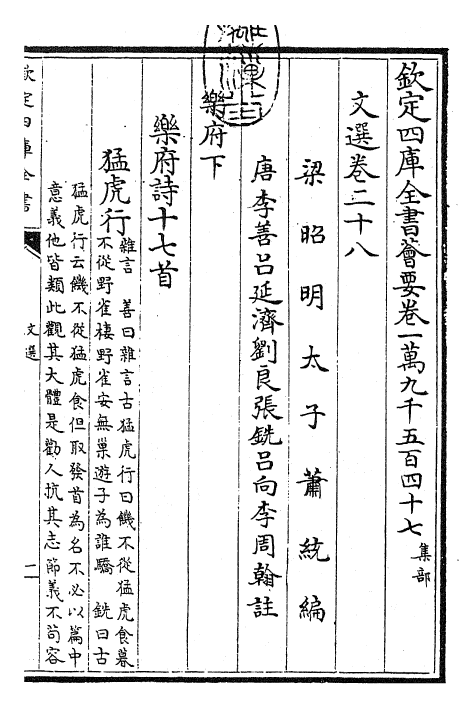 欽定四庫全書薈要卷一萬九千五百四十七 集部
文選卷二十八
梁昭明太子蕭統編
唐李善呂延濟劉良張銑呂向李周翰註
樂府下
樂府詩十七首
猛虎行 雜言 善曰雜言古猛虎行曰饑不從猛虎食暮
不從野雀棲野雀安無巢遊子為誰驕 銑曰古
猛虎行云饑不從猛虎食但取發首為名不必以篇中
意義他皆類此觀其大體是勸人抗其志節義不茍容
欽定四庫全書
文選
一